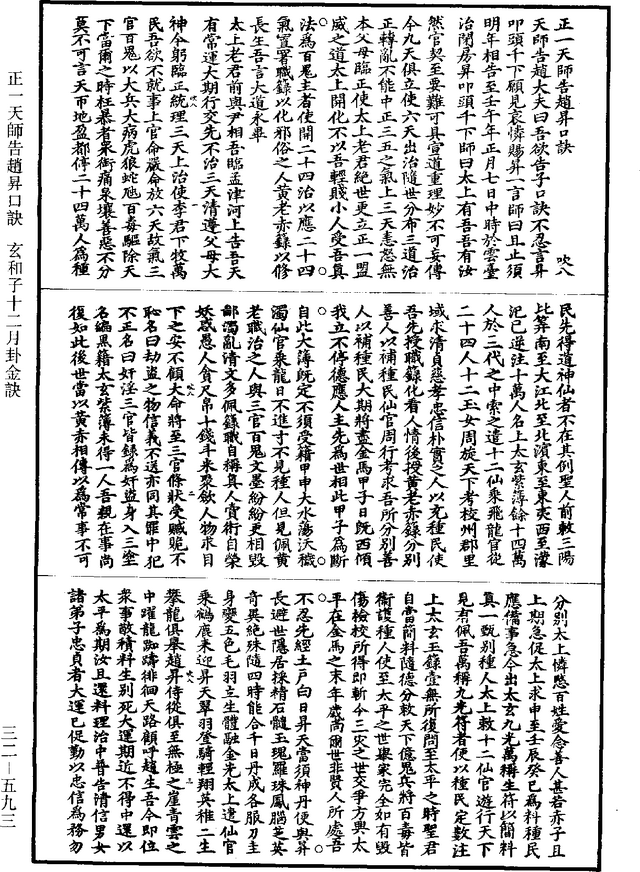 正一天師告趙昇口訣　吹八
天師告趙大夫曰吾欲告子口訣不忍言昇
叩頭千下願見哀憐賜昇一言師曰且止須
明年相告至壬午年正月七日中時於雲臺
治閉房昇叩頭千下師曰太上有吾吾有汝
然官契至要難可具宣道重理妙不可妄傳
今九天俱立使六天出治隨世分布三道治
正轉亂不能中正三五之氣上三天恚怒無
本父母臨正使太上老君絕世更立正一盟
威之道太上開化不以吾輕賤小人受吾真
法為百鬼主者使開二十四治以應二十四
氣置署職籙以化邪俗之人黃老赤籙以修
長生吾言大道永畢
太上老君前與尹相吾臨孟津河上告吾天
有常運大期行交先不治三天清遵父母大
神今躬臨正統理三天上治使李君下牧萬
民吾欲不就事上官命嚴命放六天故氣三
官百鬼以大兵大病虎狼蛇虺百毒驅除天
下當爾之時枉暴者眾銜痛泉壤善惡不分
莫不可言天币地盈都停二十四萬人為種
民先得道神仙者不在其例聖人前敕三陽
比筭南至大江北至北濱東至東夷西至濛
汜已逆注十萬人名上太玄紫薄餘十四萬
人於三代之中索之遣十二仙乘飛龍官從
二十四人十二玉女周旋天下考校州郡里
域求清貞慈孝忠信朴實之人以充種民使
吾先授職籙化看人情後授黃老赤籙分別
善人以補種民仙官周行考求吾所分別善
人以補種民大期將盡金馬甲子日既西傾
我立不停德應人主先為世相此甲子為斷
自此大薄既定不須受籍甲申大水蕩沃穢
濁仙官乘龍日不進寸不見種人但見佩黃
老職治之人與三官百鬼文墨紛紛更相毀
鄙濁亂清文多佩籙職自稱真人賣術自榮
妖惑愚人貪尺帛十錢斗米聚斂人物求目
下之安不顧大命將至三官條狀受贓賂不
恥名曰劫盜之物信義不送亦同其罪中犯
不正名曰奸淫三官皆錄為奸盜身入三塗
名編黑籍太玄紫薄未得一人吾親在事尚
復如此後世當以黃赤相傳以為常事不可
分別太上憐愍百姓愛念善人甚若赤子且
上期急促太上求申至壬辰癸巳為料種民
應備事急今出太玄九光萬稱生符以簡料
真一甄別種人太上敕十二仙官遊行天下
見有佩吾萬稱九光符者便以種民定數注
上太玄玉籙壹無所復問至太平之時聖君
自當簡料隨德分敕天下億鬼兵將百毒皆
衛護種人使至太平之世舉家完全如有毀
傷檢校所得即斬今三灾之世交爭方興太
平在金馬之末年歲尚爾世非賢人所處吾
不忍先經土戶白日昇天當須神丹便與昇
長避世隱居採精石髓玉瑰羅珠鳳腦芝英
奇異絕殊隨四時能合千日丹成各服刀圭
身變五色毛羽立生體融金光太上遣仙官
乘鶴鹿來迎昇天翠羽登騎輕翔英稚二生
攀龍俱舉趙昇侍從俱至無極之崖青雲之
中躍龍踟躊徘徊天路顧呼趙生吾今即位
眾事敵積料生別死大運期近不得中還以
太平為期汝且還料理治中普告清信男女
諸弟子忠貞者大運已促勤以忠信為務勿
正一天師告趙昇口訣　玄和子十二月卦金訣
三二—五九三